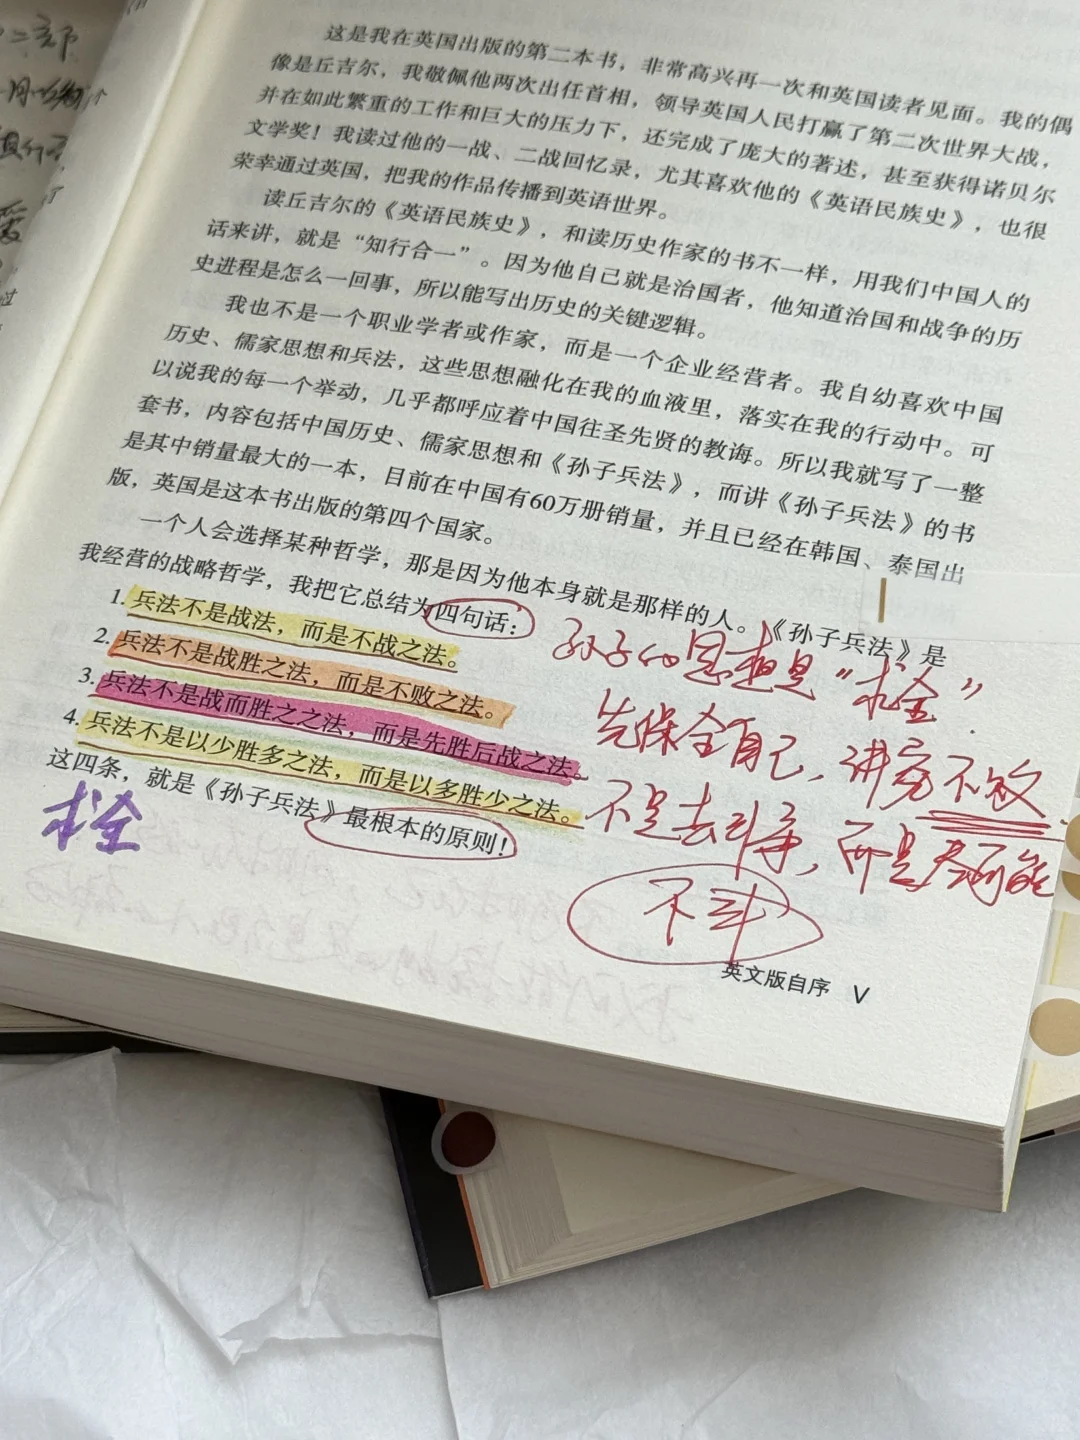 这是我在英国出版的第二本书，非常高兴再一次和英国读者见面。我的偶
像是丘吉尔，我敬佩他两次出任首相，领导英国人民打赢了第二次世界大战，
并在如此繁重的工作和巨大的压力下，还完成了庞大的著述，甚至获得诺贝尔
文学奖！我读过他的一战、二战回忆录，尤其喜欢他的《英语民族史》，也很
荣幸通过英国，把我的作品传播到英语世界。
读丘吉尔的《英语民族史》，和读历史作家的书不一样，用我们中国人的
话来讲，就是“知行合一”。因为他自己就是治国者，他知道治国和战争的历
史进程是怎么一回事，所以能写出历史的关键逻辑。
我也不是一个职业学者或作家，而是一个企业经营者。我自幼喜欢中国
历史、儒家思想和兵法，这些思想融化在我的血液里，落实在我的行动中。可
以说我的每一个举动，几乎都呼应着中国往圣先贤的教诲。所以我就写了一整
套书，内容包括中国历史、儒家思想和《孙子兵法》，而讲《孙子兵法》的书
是其中销量最大的一本，目前在中国有60万册销量，并且已经在韩国、泰国出
版，英国是这本书出版的第四个国家。
一个人会选择某种哲学，那是因为他本身就是那样的人。《孙子兵法》是
我经营的战略哲学，我把它总结为四句话：
1. 兵法不是战法，而是不战之法。
2. 兵法不是战胜之法，而是不败之法。
3. 兵法不是战而胜之之法，而是先胜后战之法。
4. 兵法不是以少胜多之法，而是以多胜少之法。
这四条，就是《孙子兵法》最根本的原则！
求全
孙子的思想是“求全”
先保全自己，讲究不败
不是去斗争，而是尽可能
不斗
英文版自序 V